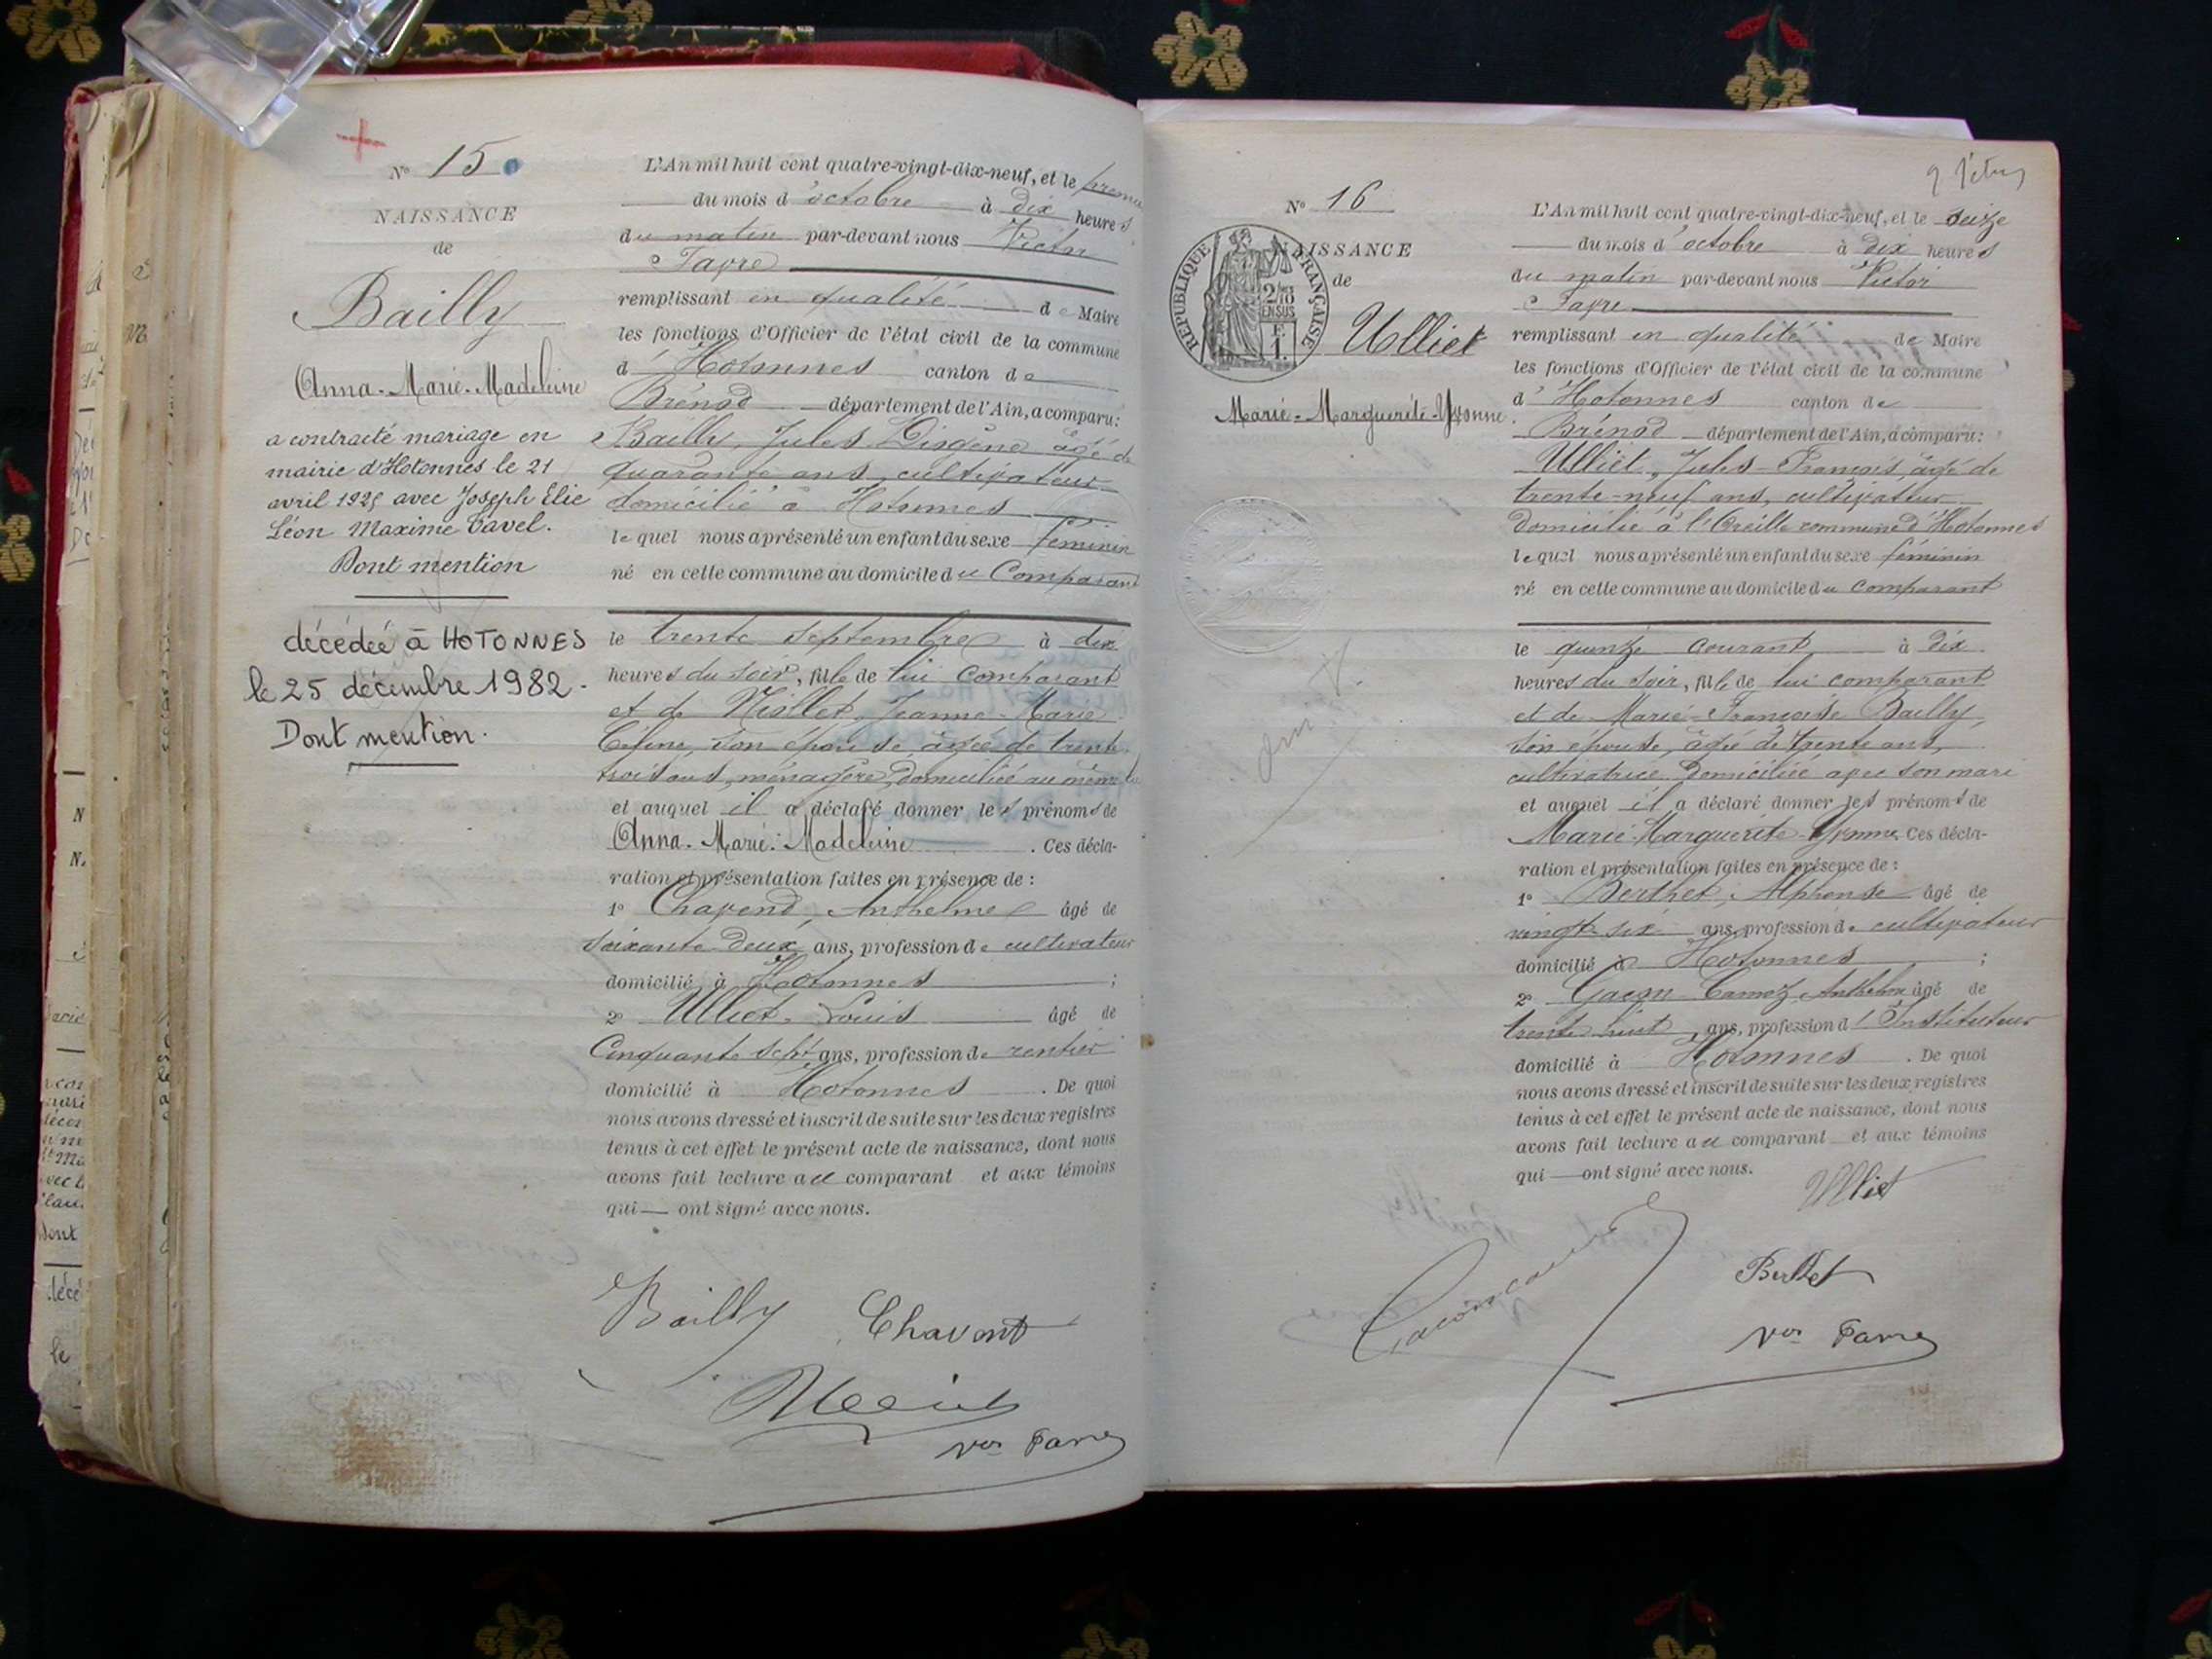 N° 15
NAISSANCE
de
Bailly
Anna-Marie-Madeleine
a contracté mariage en
mairie d'Hotonnes le 21
avril 1925 avec Joseph Elie
Léon Maxime Tavel.
Dont mention
décédée à HOTONNES
le 25 décembre 1982.
Dont mention.
L'An mil huit cent quatre-vingt-dix-neuf, et le premier
du mois d'octobre à dix heures
du matin par-devant nous Victor
Favre
remplissant en qualité de Maire
les fonctions d'Officier de l'état civil de la commune
d'Hotonnes canton de
Brénod département de l'Ain, a comparu:
Bailly, Jules Diogène âgé de
quarante ans, cultivateur
domicilié à Hotonnes
lequel nous a présenté un enfant du sexe féminin
né en cette commune au domicile du Comparant
le trente septembre à dix
heures du soir, fille de lui comparant
et de Jeanne-Marie
son épouse âgée de trente
trois ans, ménagère, domiciliée au même
et auquel il a déclaré donner les prénoms de
Anna-Marie-Madeleine. Ces décla-
ration et présentation faites en présence de :
1° Chavend, Anthelme âgé de
soixante-deux ans, profession de cultivateur
domicilié à Hotonnes ;
2° Ulliet Louis âgé de
Cinquante sept ans, profession de rentier
domicilié à Hotonnes. De quoi
nous avons dressé et inscrit de suite sur les deux registres
tenus à cet effet le présent acte de naissance, dont nous
avons fait lecture au comparant et aux témoins
qui — ont signé avec nous.
Bailly Chavent
Ulliet
Vor Favre
9 fétes
N° 16
NAISSANCE
de
RÉPUBLIQUE FRANÇAISE
2/10
EN SUS
F.
1.
Ulliet
Marie-Marguerite-Yvonne.
L'An mil huit cent quatre-vingt-dix-neuf, et le seize
du mois d'octobre à dix heures
du matin par-devant nous Victor
Favre
remplissant en qualité de Maire
les fonctions d'Officier de l'état civil de la commune
d'Hotonnes canton de
Brénod département de l'Ain, a comparu:
Ulliet, Jules-François, âgé de
trente-neuf ans, cultivateur
domicilié à commune d'Hotonnes
lequel nous a présenté un enfant du sexe féminin
né en cette commune au domicile du comparant
le quinze courant à dix
heures du soir, fille de lui comparant
et de Marie-Françoise Bailly,
son épouse, âgée de trente ans,
cultivatrice domiciliée avec son mari
et auquel il a déclaré donner les prénoms de
Marie-Marguerite-Yvonne. Ces décla-
ration et présentation faites en présence de :
1° Berthet, Alphonse âgé de
vingt-six ans, profession de cultivateur
domicilié à Hotonnes ;
2° Gacon Camoz, Anthelme âgé de
trente huit ans, profession d'Instituteur
domicilié à Hotonnes. De quoi
nous avons dressé et inscrit de suite sur les deux registres
tenus à cet effet le présent acte de naissance, dont nous
avons fait lecture au comparant et aux témoins
qui — ont signé avec nous.
Ulliet
Berthet
Vor Favre